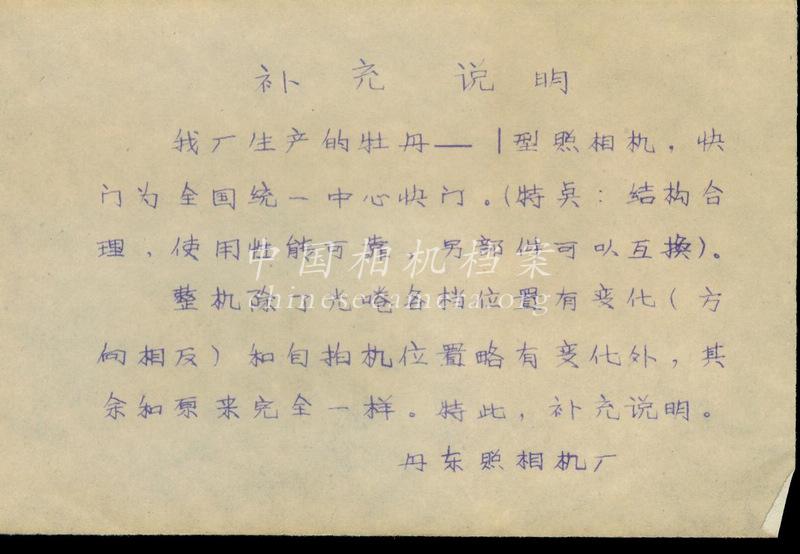 补充说明
我厂生产的牡丹——1型照相机，快
门为全国统一中心快门。(特点：结构合
理，使用性能可靠，另部件可以互换)。
整机除了光啳各档位置有变化(方
向相反)和自拍机位置略有变化外，其
余和原来完全一样。特此，补充说明。
丹东照相机厂
中国相机档案
chinesecamera.org